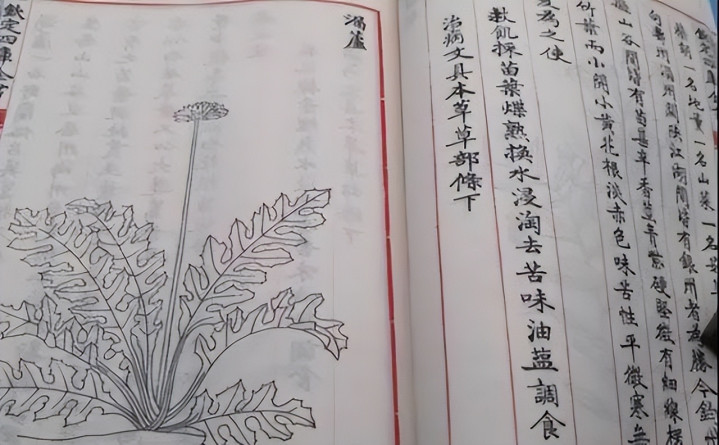 柴胡一名地薰一名山菜一名
句壽州淄州關陝江湖間皆有銀州者為勝今鈞州
山谷間皆有苗甚辛香莖青紫硬堅微有細線楞
竹葉而小開小黃花根淡赤色味苦性平微寒無
夏為之使
救飢採苗葉煠熟換水浸淘去苦味油鹽調食
治病文具本草草部條下
漏蘆
欽定四庫全書